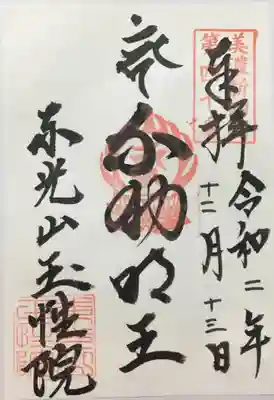 美濃新
第四十
奉拝
令和二年
十二月十三日
不動明王
東光山玉性院